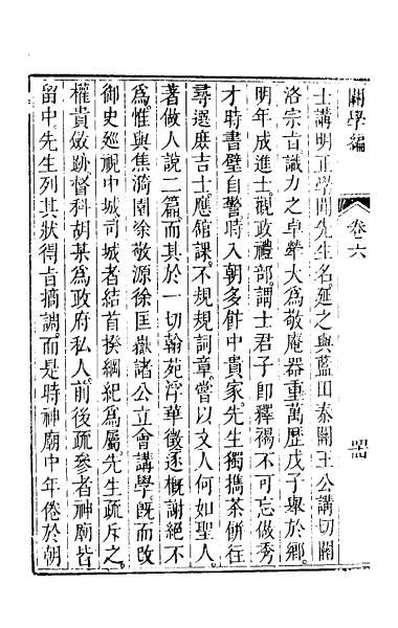 關學編
卷六
士講明正學聞先生名延之與藍田秦關王公講切關
洛宗旨識力之卓犖大爲敬庵器重萬歷戊子舉於鄉
明年成進士觀政禮部謂士君子即釋褐不可忘做秀
才時書壁自警時入朝多餙中貴家先生獨攜茶餠往
尋選庶吉士應館課不規規詞章嘗以文人何如聖人
著做人說二篇而其於一切翰苑浮華徵逐槪謝絕不
爲惟與焦漪園徐敬源徐匡嶽諸公立會講學旣而改
御史廵視中城司城者結首揆綱紀爲屬先生疏斥之
權貴斂跡督科胡某爲政府私人前後疏參者神廟皆
留中先生列其狀得旨摘調而是時神廟中年倦於朝